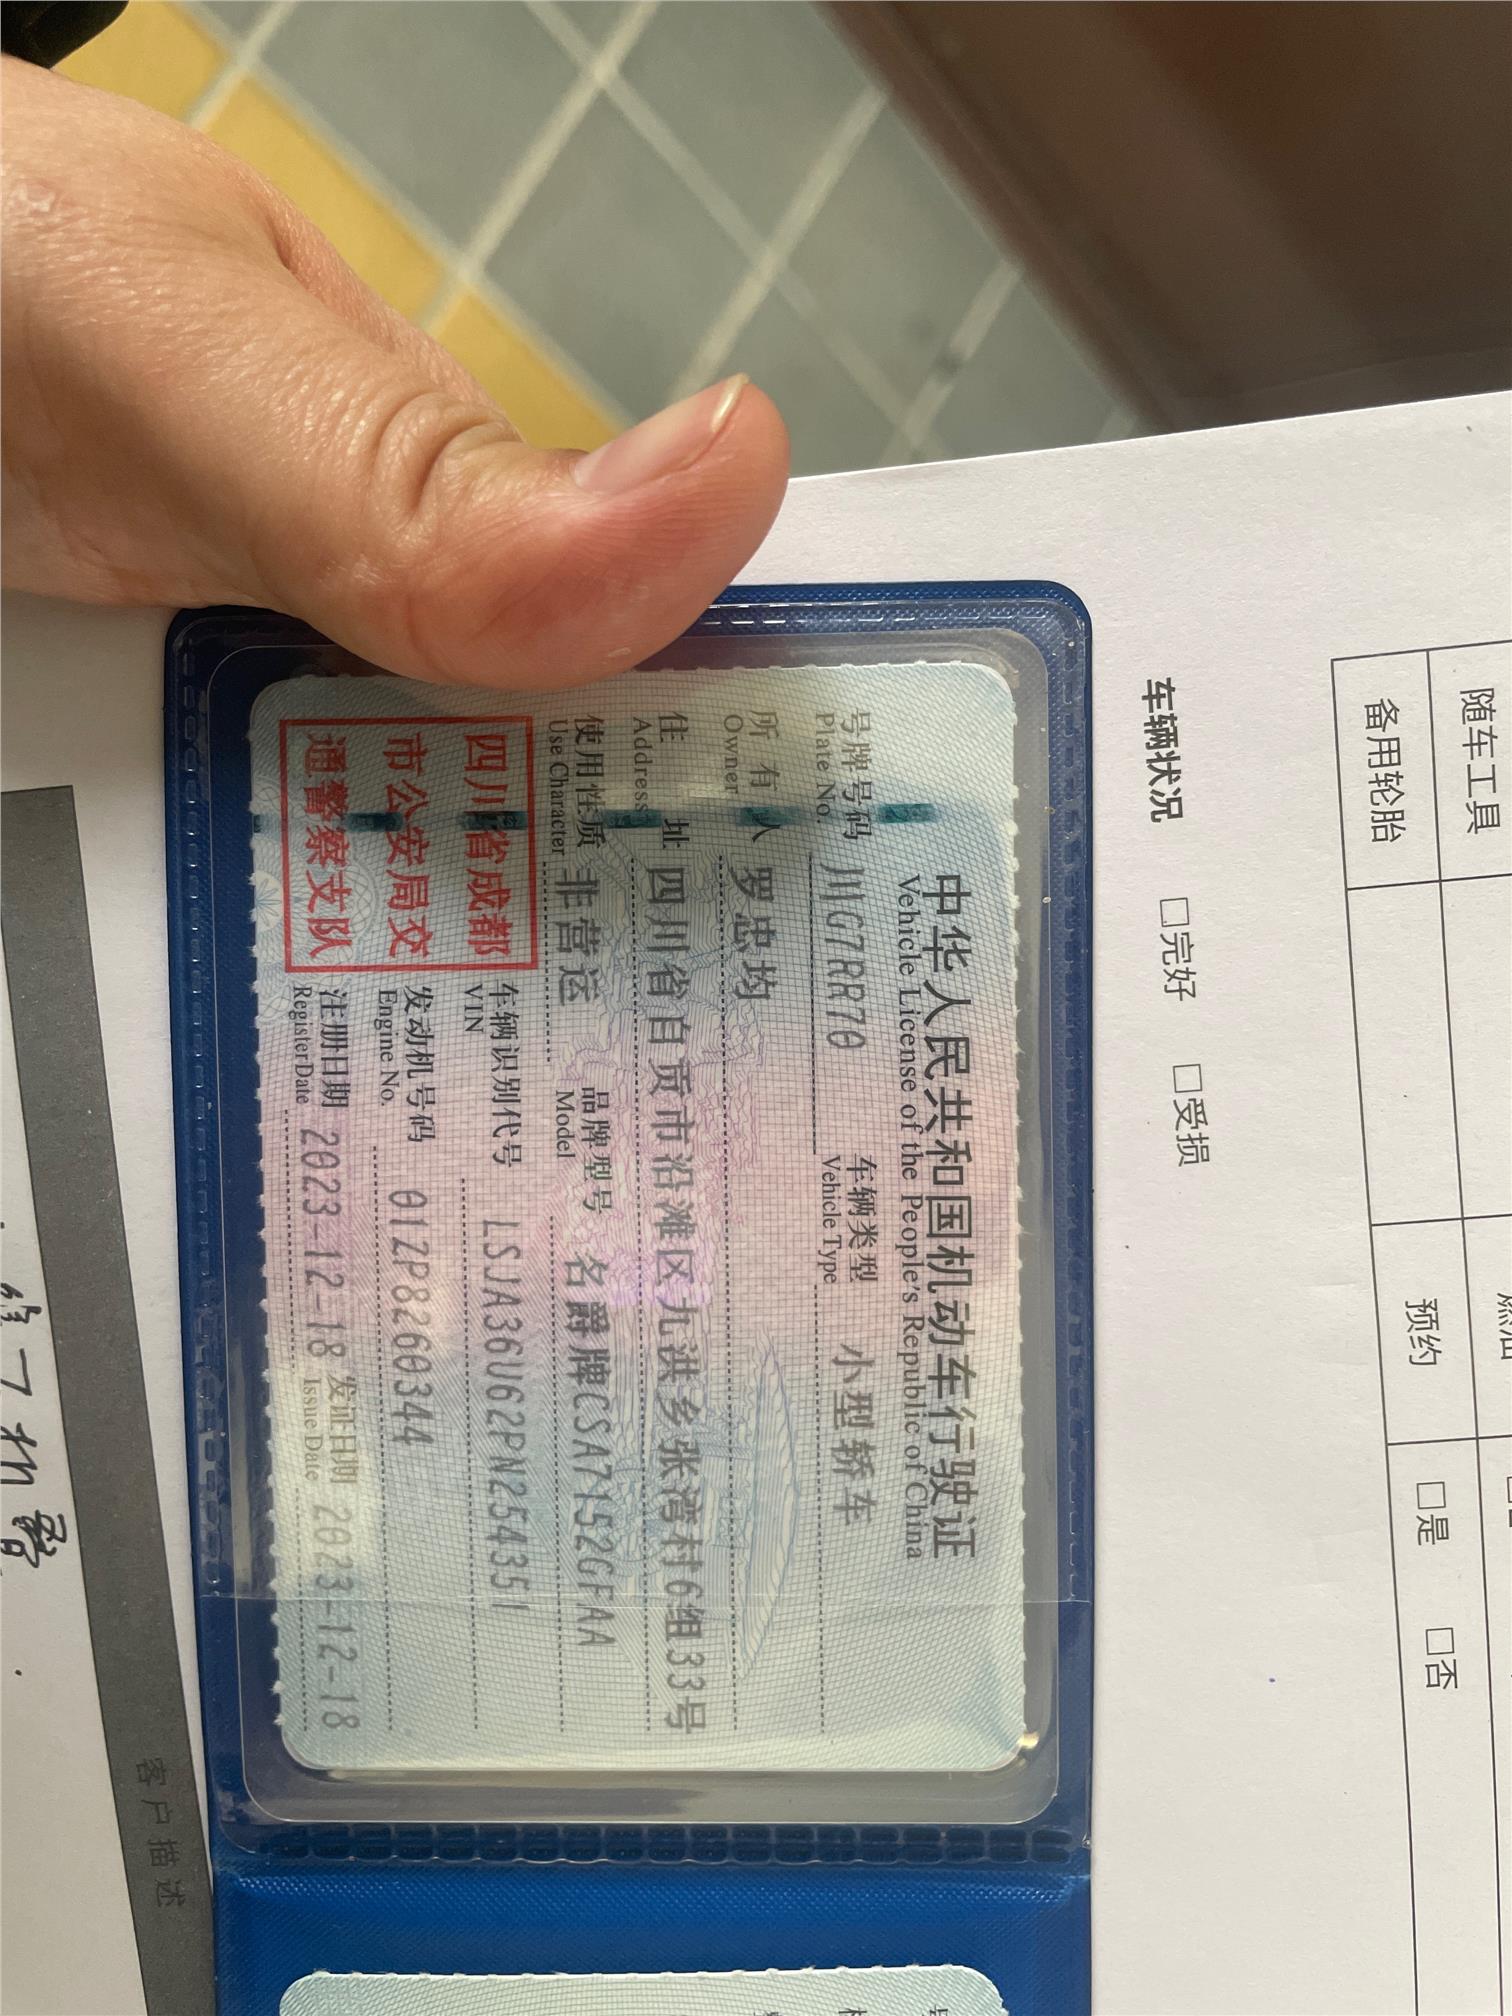 中华人民共和国机动车行驶证
Vehicle License of the People's Republic of China
号牌号码 川G7RR70 车辆类型 小型轿车
Plate No. Vehicle Type
所有人 罗忠均
Owner
住址 四川省自贡市沿滩区九洪乡张湾村6组33号
Address
使用性质 非营运 品牌型号 名爵牌CSA7152GFAA
Use Character Model
四川省成都
市公安局交
通警察支队
车辆识别代号 LSJA36U62PN254351
VIN
发动机号码 01ZP8260344
Engine No.
注册日期 2023-12-18 发证日期 2023-12-18
Register Date Issue Date
随车工具
备用轮胎 预约 □是 □否
车辆状况 □完好 □受损
客户描述